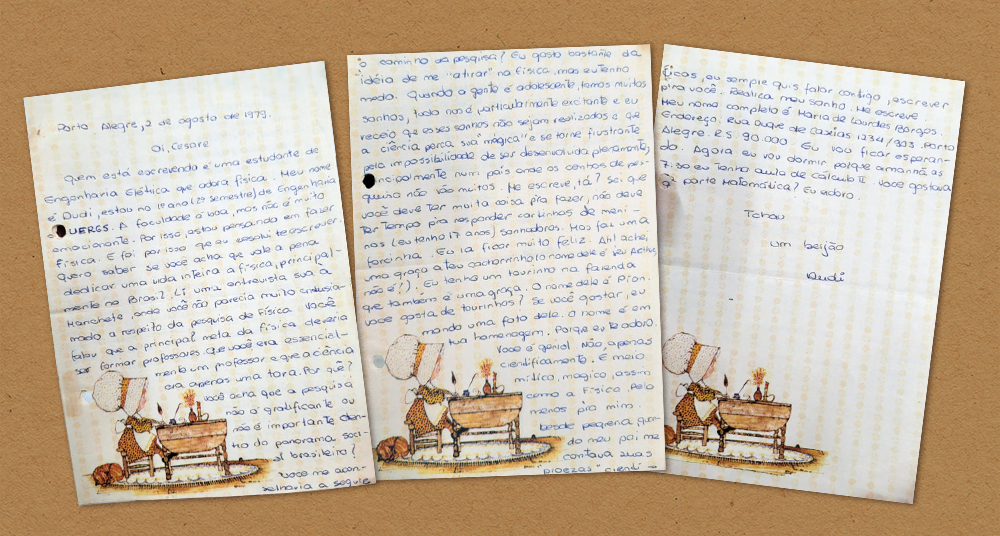 Porto Alegre, 2 de agosto de 1979.
Oi, Cesare
Quem está escrevendo é uma estudante de
Engenharia Elétrica que adora física. Meu nome
é Dudi, estou no 1º ano (2º semestre) de Engenharia
UFRGS. A faculdade é boa, mas não é muito
emocionante. Por isso, estou pensando em fazer
Física. E foi por isso que eu resolvi te escrever
Quero saber se você acha que vale a pena
dedicar uma vida inteira a física, principal-
mente no Brasil. Li uma entrevista sua a
Manchete, onde você não parecia muito entusias-
mado a respeito da pesquisa de Física. Você
falou que a principal meta da física deveria
ser formar professores. Que você era essencial-
mente um professor e que a ciência
era apenas uma tara. Por quê?
você acha que a pesquisa
não é gratificante ou
não é importante den-
tro do panorama soci-
al brasileiro?
Você me acon-
selharia a seguir
o caminho da pesquisa? Eu gosto bastante da
idéia de me "atirar" na física, mas eu tenho
medo. Quando a gente é adolescente, temos muitos
sonhos, tudo nos é particularmente excitante e eu
receio que esses sonhos não sejam realizados e que
a ciência perca sua "mágica" e se torne frustrante
pela impossibilidade de ser desenvolvida plenamente,
principalmente num país onde os centros de pes-
quisa não são muitos. Me escreve, tá? Sei que
você deve ter muita coisa pra fazer, não deve
ter tempo pra responder cartinhas de meni-
nas (eu tenho 17 anos) sonhadoras. Mas faz uma
forcinha. Eu ia ficar muito feliz. Ah! achei
uma graça o teu cachorrinho (o nome dele é seu Arthur,
não é?). Eu tenho um tourinho na fazenda
que também é uma graça. O nome dele é Píon.
Você gosta de tourinhos? Se você gostar, eu
mando uma foto dele. O nome é em
tua homenagem. Porque eu te adoro.
Você é genial. Não, apenas
cientificamente. É meio
mítico, mágico, assim
como a Física. Pelo
menos pra mim.
Desde pequena quan-
do meu pai me
contava suas
"proezas" cientí-
ficas, eu sempre quis falar contigo, escrever
pra você. Realiza meu sonho. Me escreve.
Meu nome completo é Maria de Lourdes Borges.
Endereço: Rua Duque de Caxias 1234/903. Porto
Alegre. RS 90.000. Eu vou ficar esperan-
do. Agora eu vou dormir porque amanhã às
7:30 eu tenho aula de Cálculo II. Você gostava
da parte Matemática? Eu adoro.
Tchau
um beijão
Dudi